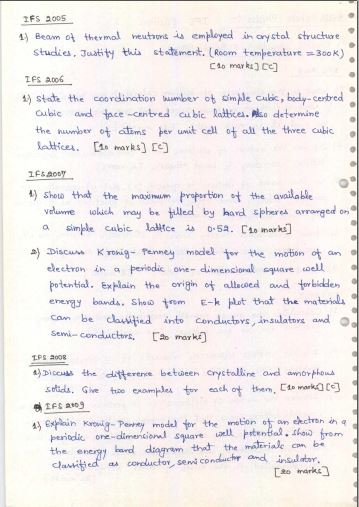 IFS 2005
1) Beam of thermal neutrons is employed in crystal structure
studies. Justify this statement. (Room temperature = 300K)
[10 marks] [C]
IFS 2006
1) State the coordination number of simple cubic, body-centred
cubic and face-centred cubic lattices. Also determine
the number of atoms per unit cell of all the three cubic
lattices. [10 marks] [C]
IFS 2007
1) Show that the maximum proportion of the available
volume which may be filled by hard spheres arranged on
a simple cubic lattice is 0.52. [10 marks]
2) Discuss Kronig-Penney model for the motion of an
electron in a periodic one-dimensional square well
potential. Explain the origin of allowed and forbidden
energy bands. Show from E-k plot that the materials
can be classified into conductors, insulators and
semi-conductors. [20 marks]
IFS 2008
1) Discuss the difference between crystalline and amorphous
solids. Give two examples for each of them. [10 marks] [C]
IFS 2009
1) Explain Kronig-Penney model for the motion of an electron in a
periodic one-dimensional square well potential. Show from
the energy band diagram that the materials can be
classified as conductor, semiconductor and insulator.
[20 marks]